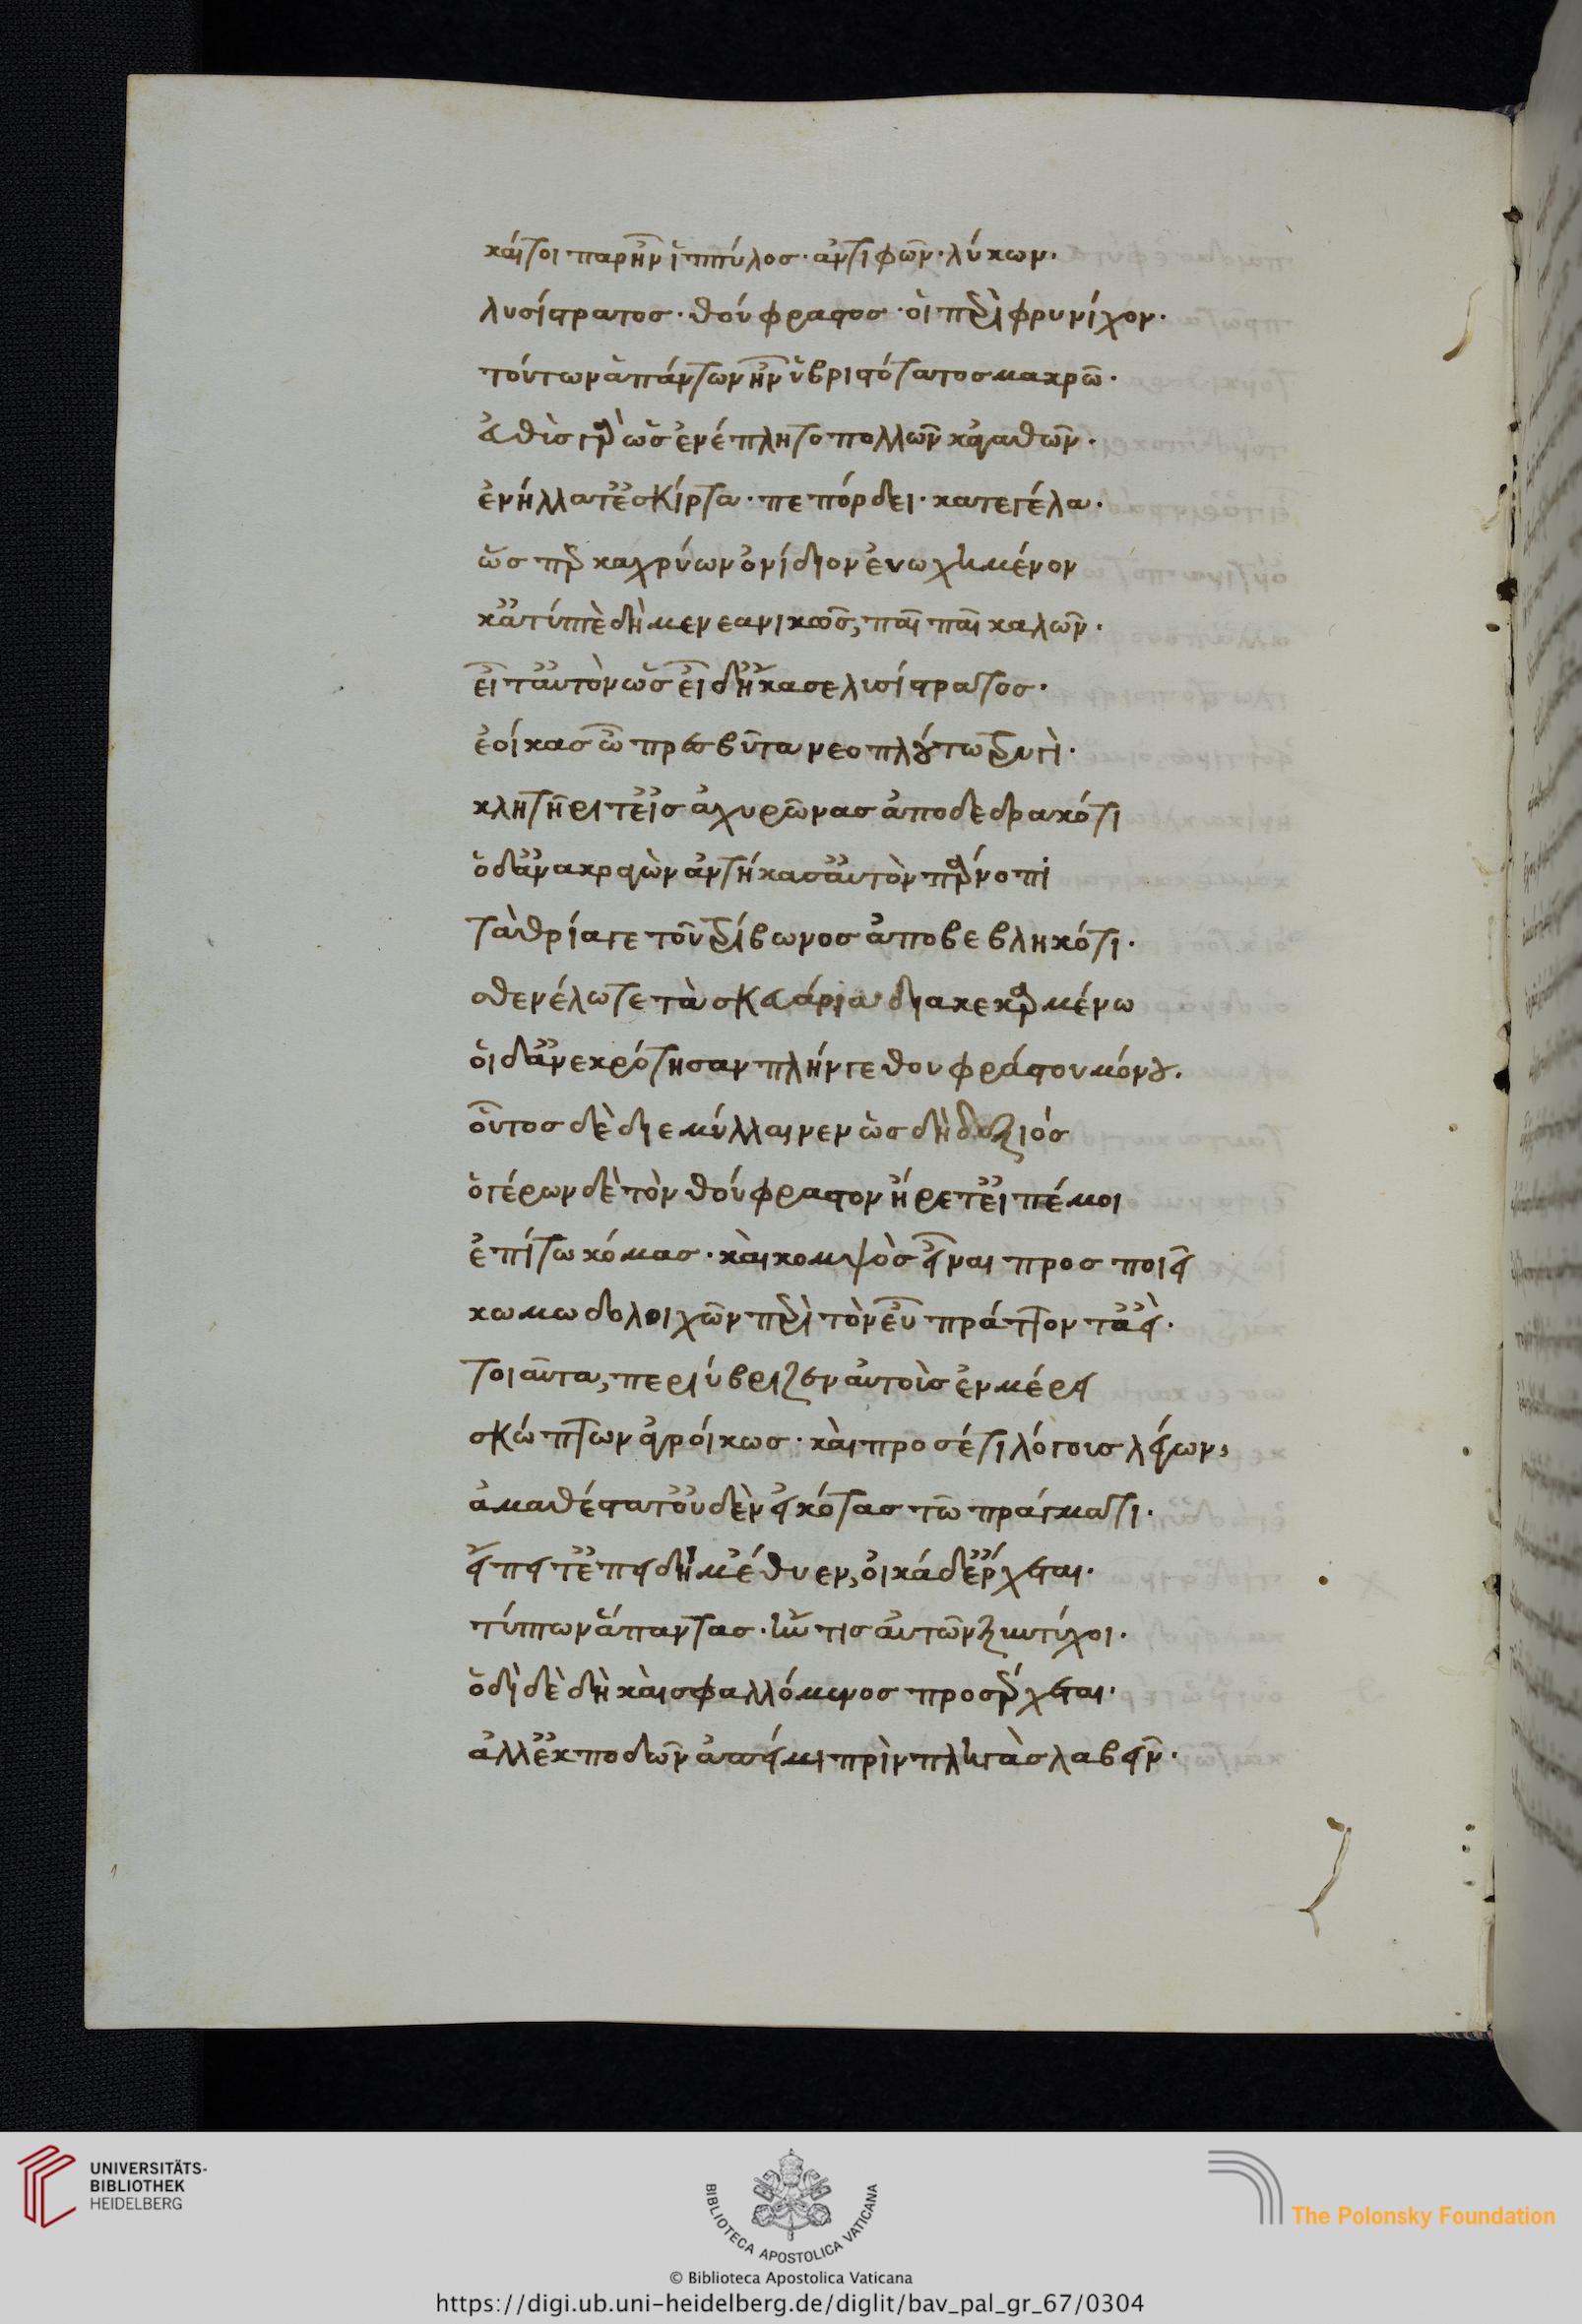 καίτοι παρῆν ἵππυλος· ἀντιφῶν· λύκων·
λυσίστρατος· θούφραστος· οἱ περὶ φρυνίχον·
τούτων ἁπάντων ἦν ὑβριστότατος μακρῶ·
εὐθὺς γὰρ ὡς ἐνέπλητο πολλῶν κἀγαθῶν·
ἐνήλλατ' ἐσκίρτα· πεπόρδει· κατεγέλα·
ὥσπερ καχρύων ὀνίδιον εὐωχημένον
κἄτυπτε δή με νεανικῶς, παῖ παῖ καλῶν·
εἶτ' αὐτὸν ὡς εἶδ' ἤκασε λυσίστρατος·
ἔοικας ὦ πρεσβῦτα νεοπλούτω τρυγί·
κλητῆρί τ' εἰς ἀχυρῶνας ἀποδεδρακότι
ὁ δ' ἀνακραγὼν ἀντήκασ' αὐτὸν πάρνοπι
τὰ θρία γε τοῦ τρίβωνος ἀποβεβληκότι·
σθενέλω τε τὰ σκευάρια διακεκαρμένω
οἱ δ' ἀνεκρότησαν πλήν γε θουφράστου μόνου·
οὗτος δὲ διεμύλλαινεν ὡς δὴ δεξιός
ὁ γέρων δὲ τὸν θούφραστον ἤρετ' εἰπέ μοι
ἐπὶ τῶ κόμας· καὶ κομψὸς εἶναι προσποιεῖ
κωμωδολοιχῶν περὶ τὸν εὖ πράττοντ' ἀεί·
τοιαῦτα, περιύβριζεν αὐτοὺς ἐν μέρει
σκώπτων ἀγροίκως· καὶ προσέτι λόγους λέγων,
ἀμαθέστατ' οὐδὲν εἰκότας τῶ πράγματι·
ἔπειτ' ἐπειδὴ μέθυεν, οἴκαδ' ἔρχεται·
τύπτων ἅπαντας· ἤν τις αὐτῶ ξυντύχοι·
ὁδὶ δὲ δὴ καὶ σφαλλόμενος προσέρχεται·
ἀλλ' ἐκποδὼν ἄπειμι πρὶν πληγὰς λαβεῖν·
UNIVERSITÄTS-
BIBLIOTHEK
HEIDELBERG
BIBLIOTECA APOSTOLICA VATICANA
The Polonsky Foundation
© Biblioteca Apostolica Vaticana
https://digi.ub.uni-heidelberg.de/diglit/bav_pal_gr_67/0304